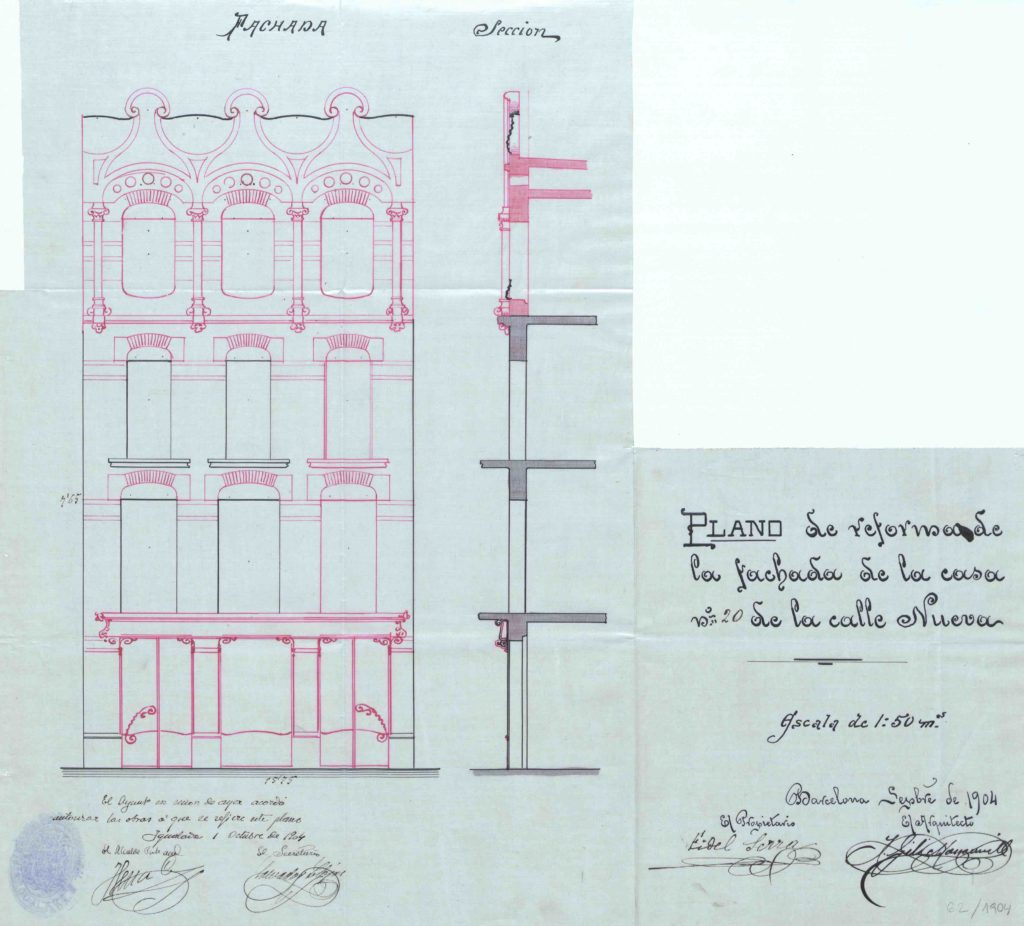 FACHADA
Seccion
PLANO de reforma de
la fachada de la casa
nº 20 de la calle Nueva
Escala de 1:50 m.s
Barcelona Sepbre de 1904
El Propietario
El Arquitecto
Fidel Serra
El Ayunt en sesion de ayer acordó
autorizar las obras á que se refiere este plano
Igualada 1 Octubre de 1904
El Alcalde
El Secretario
62/1904